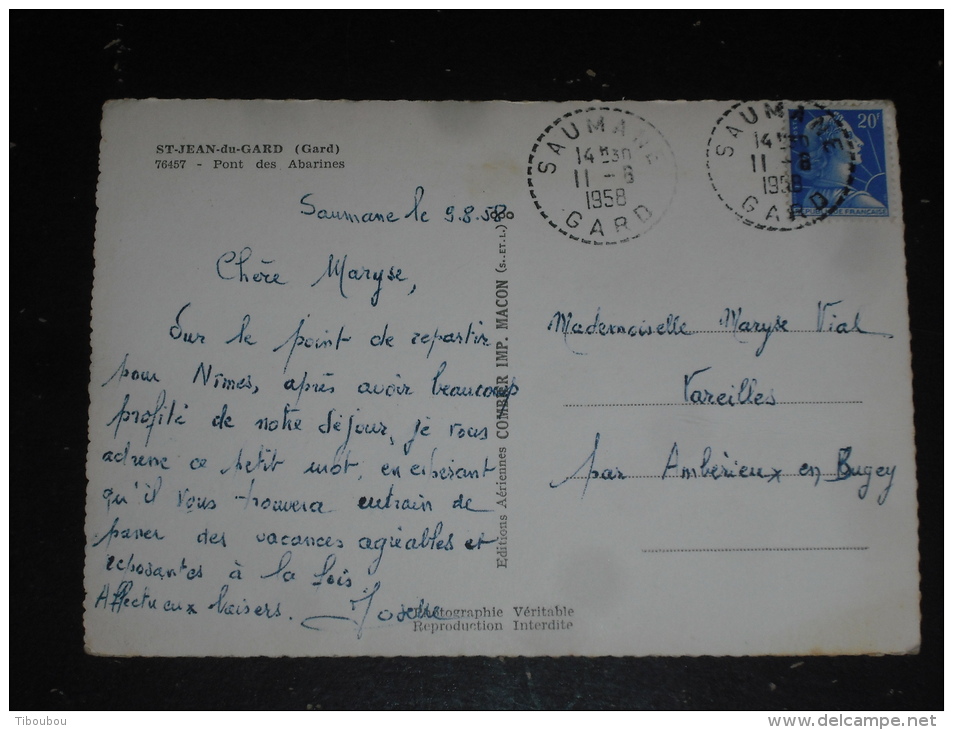 ST-JEAN-du-GARD (Gard)
76457 - Pont des Abarines
Saumane le 9.8.58
Chère Maryse,
Sur le point de repartir
pour Nîmes, après avoir beaucoup
profité de notre séjour, je vous
adresse ce petit mot, en espérant
qu'il vous trouvera entrain de
passer des vacances agréables et
reposantes à la fois.
Affectueux baisers.
Editions Aériennes COMBIER IMP. MACON (S.-ET-L.)
Photographie Véritable
Reproduction Interdite
SAUMANE
14H30
11-8
1958
GARD
SAUMANE
14H
11-8
1958
GARD
20F
Mademoiselle Maryse Vial
Vareilles
par Ambérieux en Bugey
Tiboubou
www.delcampe.net